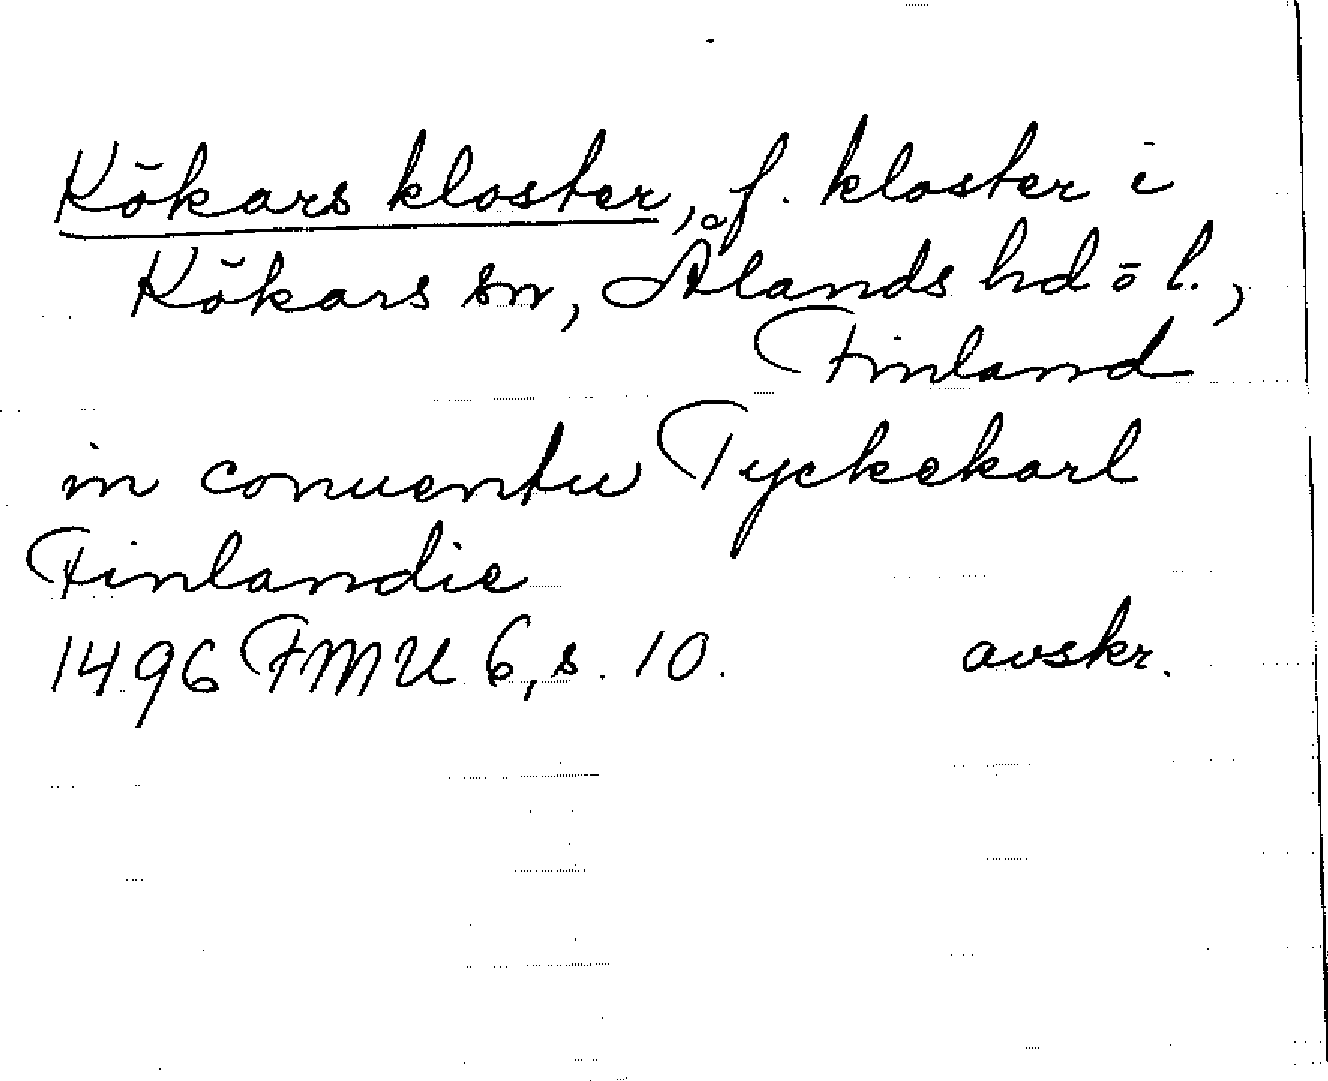 Kökars kloster, f. kloster i
Kökars sn, Ålands hd o l.,
Finland
in conuentu Tyckekarl
Finlandie
1496 FMU 6, s. 10. avskr.